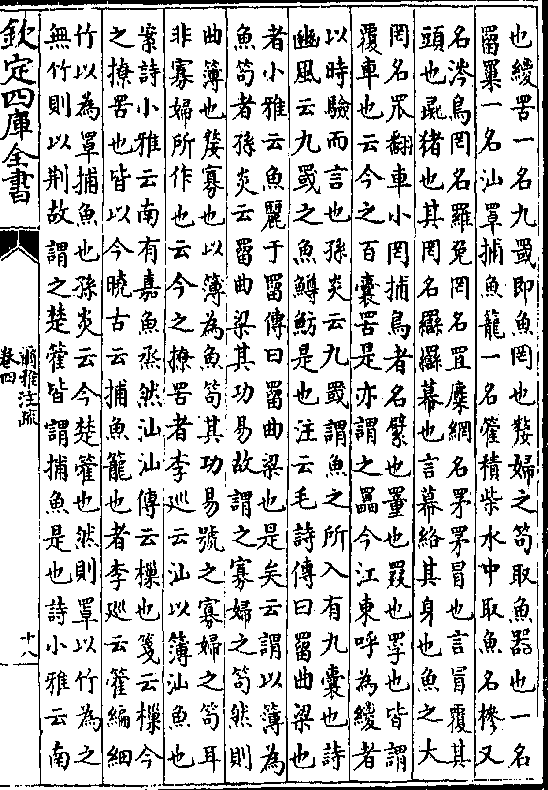 也緵罟一名九罭即魚罔也嫠婦之笱取魚器也一名
罶罺一名汕罩捕魚籠一名篧積柴水中取魚名槮又
名涔鳥罔名羅兔罔名罝麋網名茅茅冒也言冒覆其
頭也彘猪也其罔名羉羉幕也言幕絡其身也魚之大
罔名罛翻車小罔捕鳥者名繴也罿也罬也罦也皆謂
覆車也云今之百囊罟是亦謂之䍡今江東呼為緵者
以時驗而言也孫炎云九罭謂魚之所入有九囊也詩
豳風云九罭之魚鱒魴是也注云毛詩傳曰罶曲梁也
者小雅云魚麗于罶傳曰罶曲梁也是矣云謂以簿為
魚笱者孫炎云罶曲梁其功易故謂之寡婦之笱然則
曲簿也嫠寡也以簿為魚笱其功易號之寡婦之笱耳
非寡婦所作也云今之撩罟者李廵云汕以簿汕魚也
案詩小雅云南有嘉魚烝然汕汕傳云樔也箋云樔今
之撩罟也皆以今曉古云捕魚籠也者李廵云篧編細
竹以為罩捕魚也孫炎云今楚篧也然則罩以竹為之
無竹則以荆故謂之楚篧皆謂捕魚是也詩小雅云南
欽定四庫全書
爾雅注疏
卷四
十八